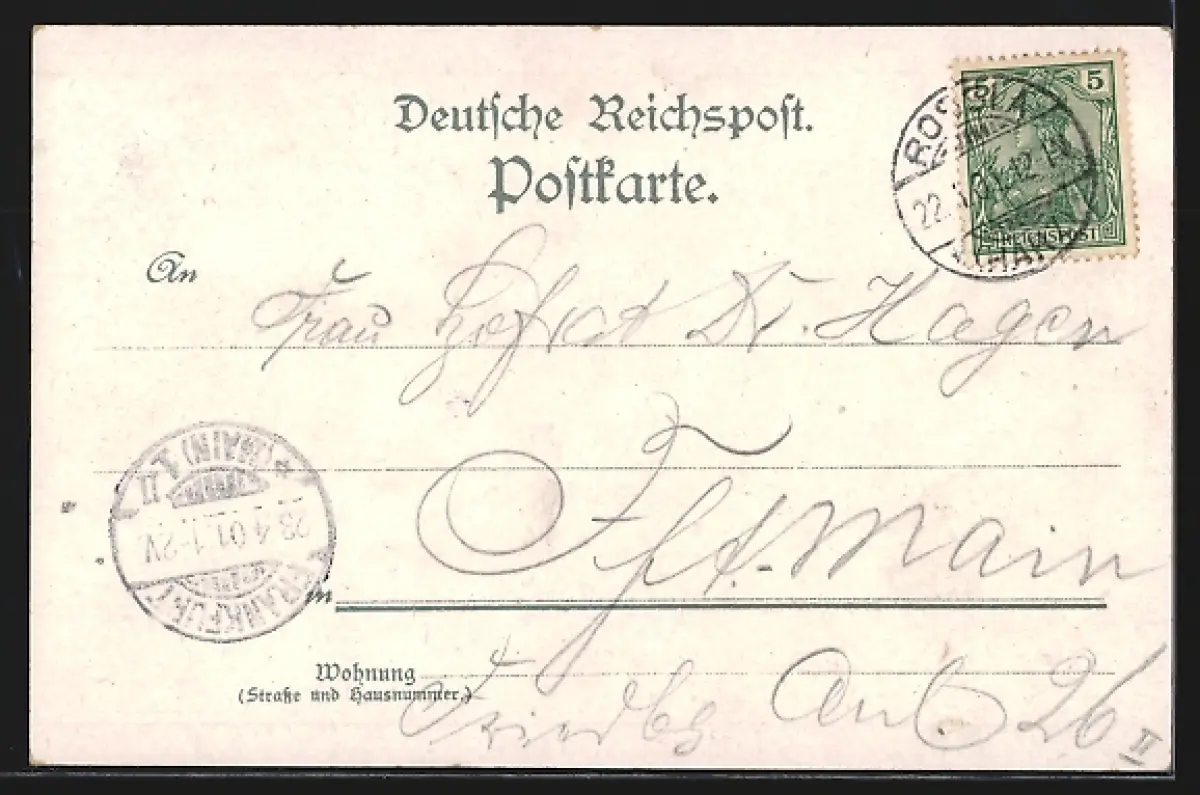 Deutsche Reichspost.
Postkarte.
5
REICHSPOST
ROSSLA
22.
(HARZ)
An
Frau Hofrat Dr. Hagen
Fft. Main
FRANKFURT
(MAIN) 1
23.4.01.1-2V.
in
Wohnung
(Straße und Hausnummer.)
Friedbg Anl 26 II